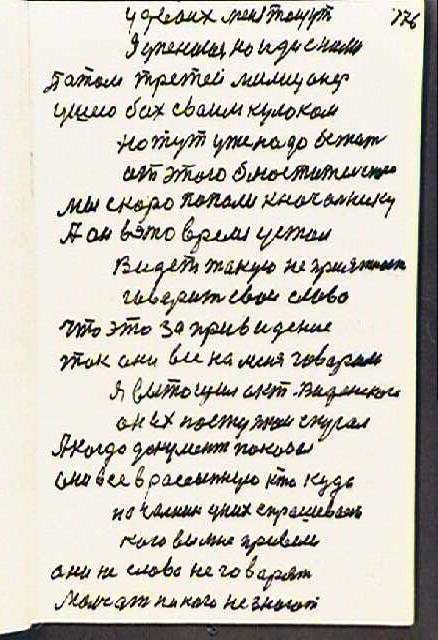 у двоих меня тощут
176
Я упенался но иду с ними
Патом третей милицонер
ушею бах сваим кулоком
но тут уже надо бежат
от этого
мы скоро попали кначалнику
А он вэто время устал
Видеть такую не приятност
говорит свои слово
что это за привидение
так они все на меня говарили
Я вытощил акт
он их поступком спугал
А когдо документ показал
они все врассыпную кто кудь
началник у них спрашевоет
кого вы мне привели
они не слово не говарят
Молчат никого не знают